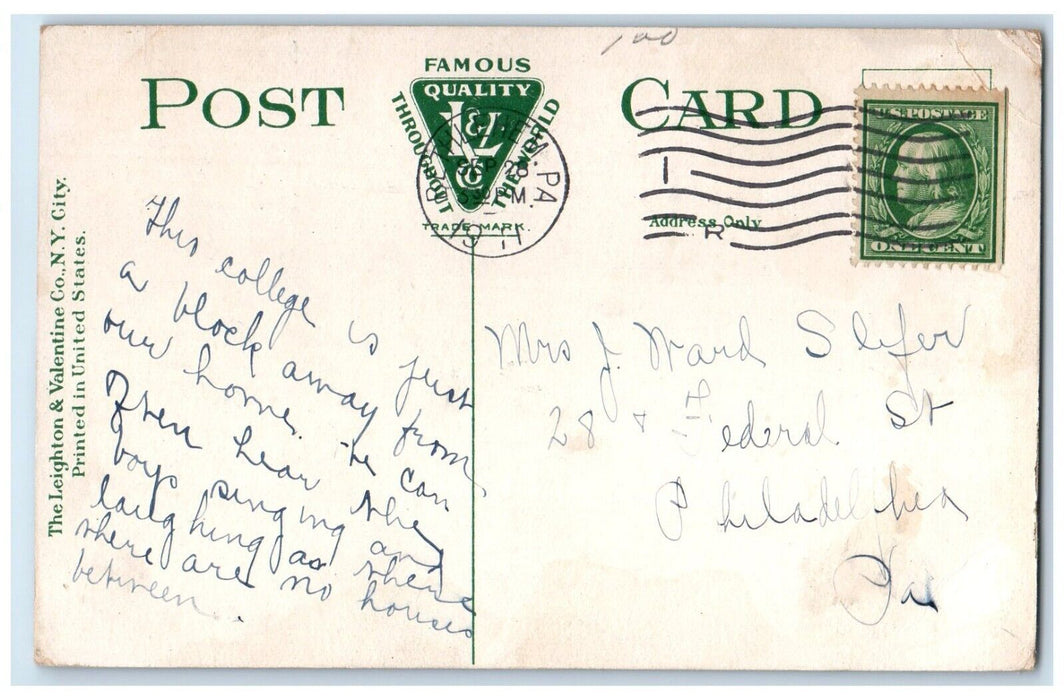 100
FAMOUS
QUALITY
THROUGHOUT
THE WORLD
L&V
Co
TRADE MARK.
POST CARD
SEP 28
PM
1911
PA.
1
R
Address Only
U.S. POSTAGE
ONE CENT
The Leighton & Valentine Co., N.Y. City.
Printed in United States.
This college is just
a block away from
our home. We can
often hear the
boys singing and
laughing as there
there are no houses
between.
Mrs J. Ward Slifer
28 & Federal St
Philadelphia
Pa